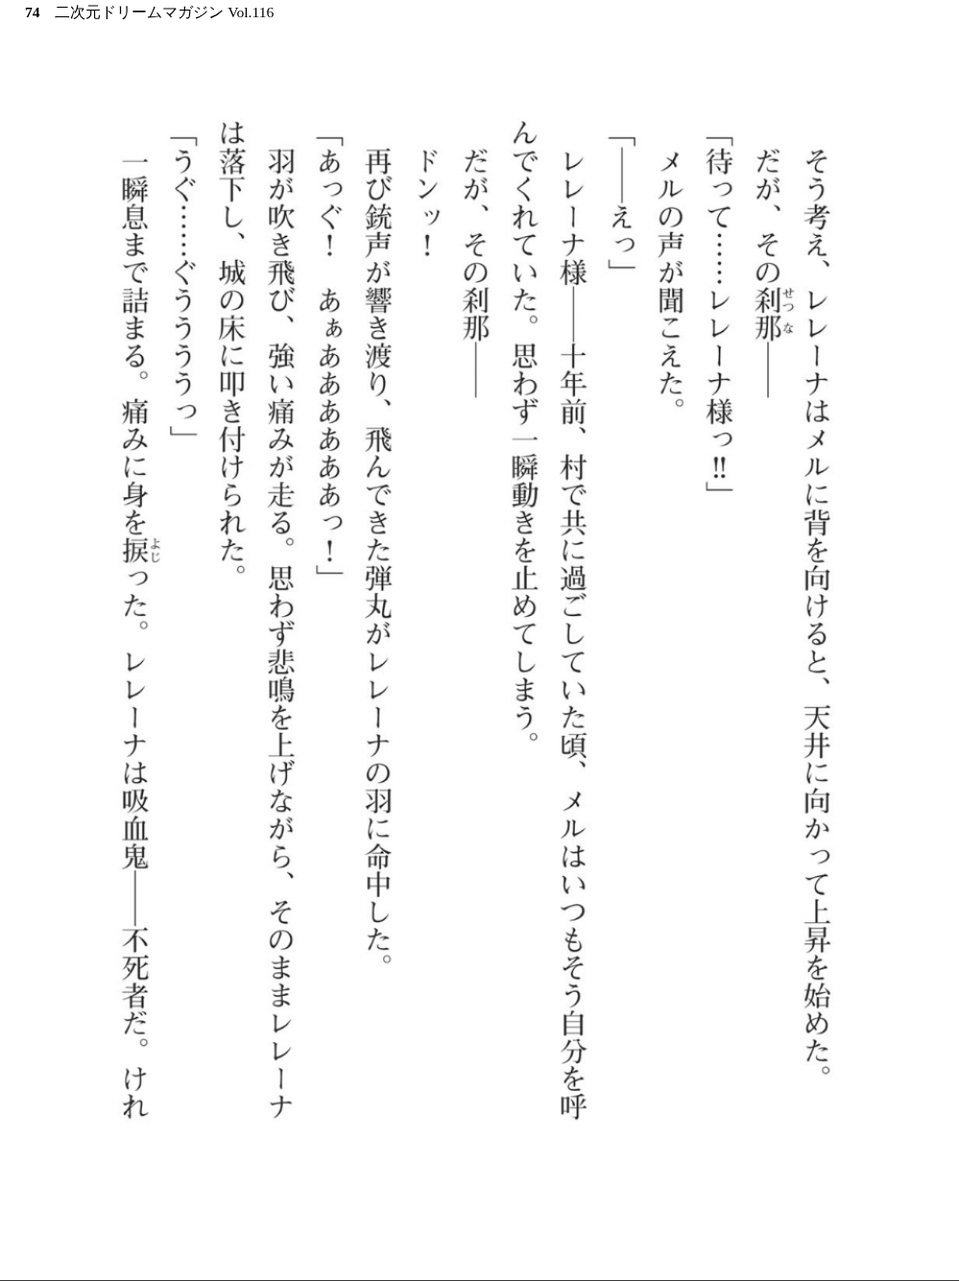 74 二次元ドリームマガジン Vol.116
そう考え、レレーナはメルに背を向けると、天井に向かって上昇を始めた。
だが、その刹那――
「待って……レレーナ様っ!!」
メルの声が聞こえた。
「――えっ」
レレーナ様――十年前、村で共に過ごしていた頃、メルはいつもそう自分を呼
んでくれていた。思わず一瞬動きを止めてしまう。
だが、その刹那――
ドンッ！
再び銃声が響き渡り、飛んできた弾丸がレレーナの羽に命中した。
「あっぐ！　あぁああああああっ！」
羽が吹き飛び、強い痛みが走る。思わず悲鳴を上げながら、そのままレレーナ
は落下し、城の床に叩き付けられた。
「うぐ……ぐうううううっ」
一瞬息まで詰まる。痛みに身を捩った。レレーナは吸血鬼――不死者だ。けれ